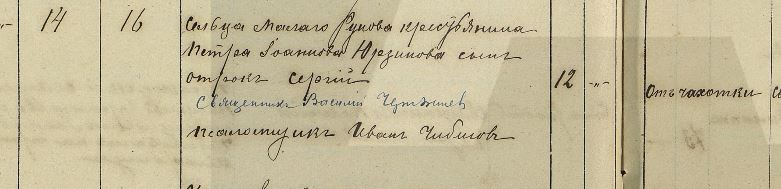 -"- 14 16 Сельца Малаго Рунова крестьянина
Петра Іоаннова Юрзинова сынъ
отрокъ Сергій 12 -"- Отъ чахотки
Священникъ Василій
псаломщикъ Иванъ Чибисовъ